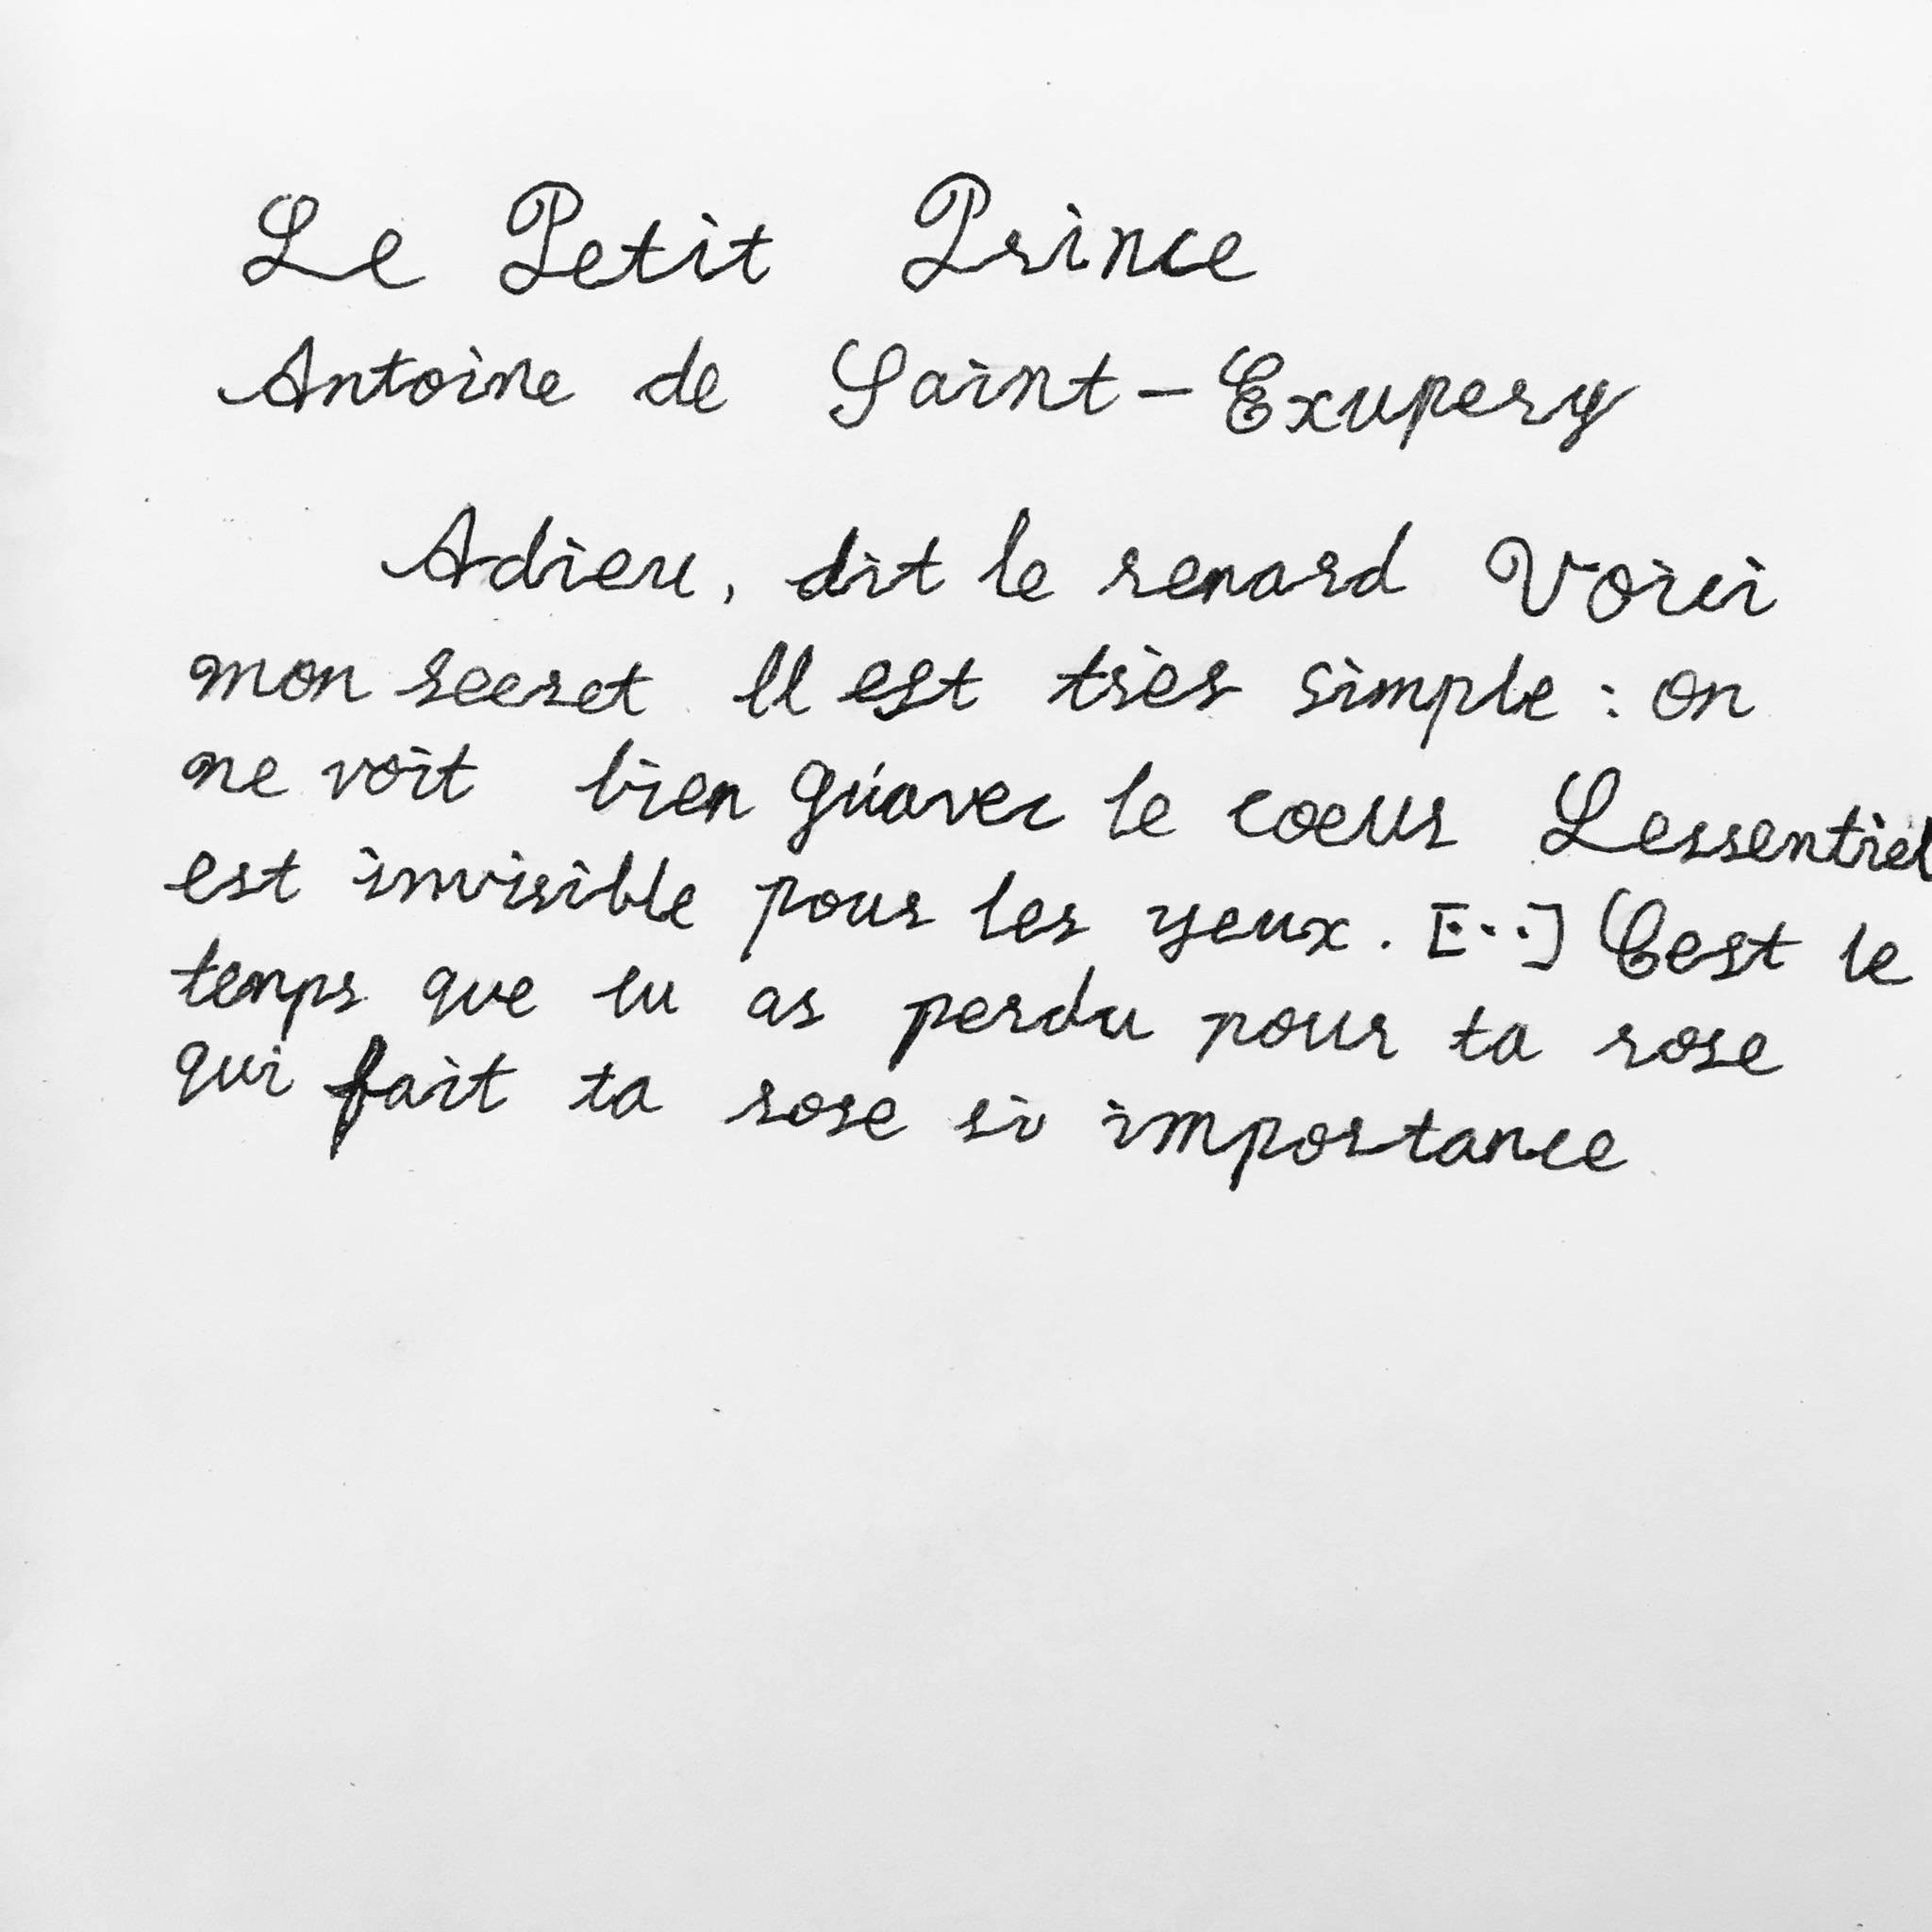 Le Petit Prince
Antoine de Saint-Exupery
Adieu, dit le renard Voici
mon secret Il est tres simple : on
ne voit bien qu'avec le coeur Lessentiel
est invisible pour les yeux. [...] Cest le
temps que tu as perdu pour ta rose
qui fait ta rose si importance